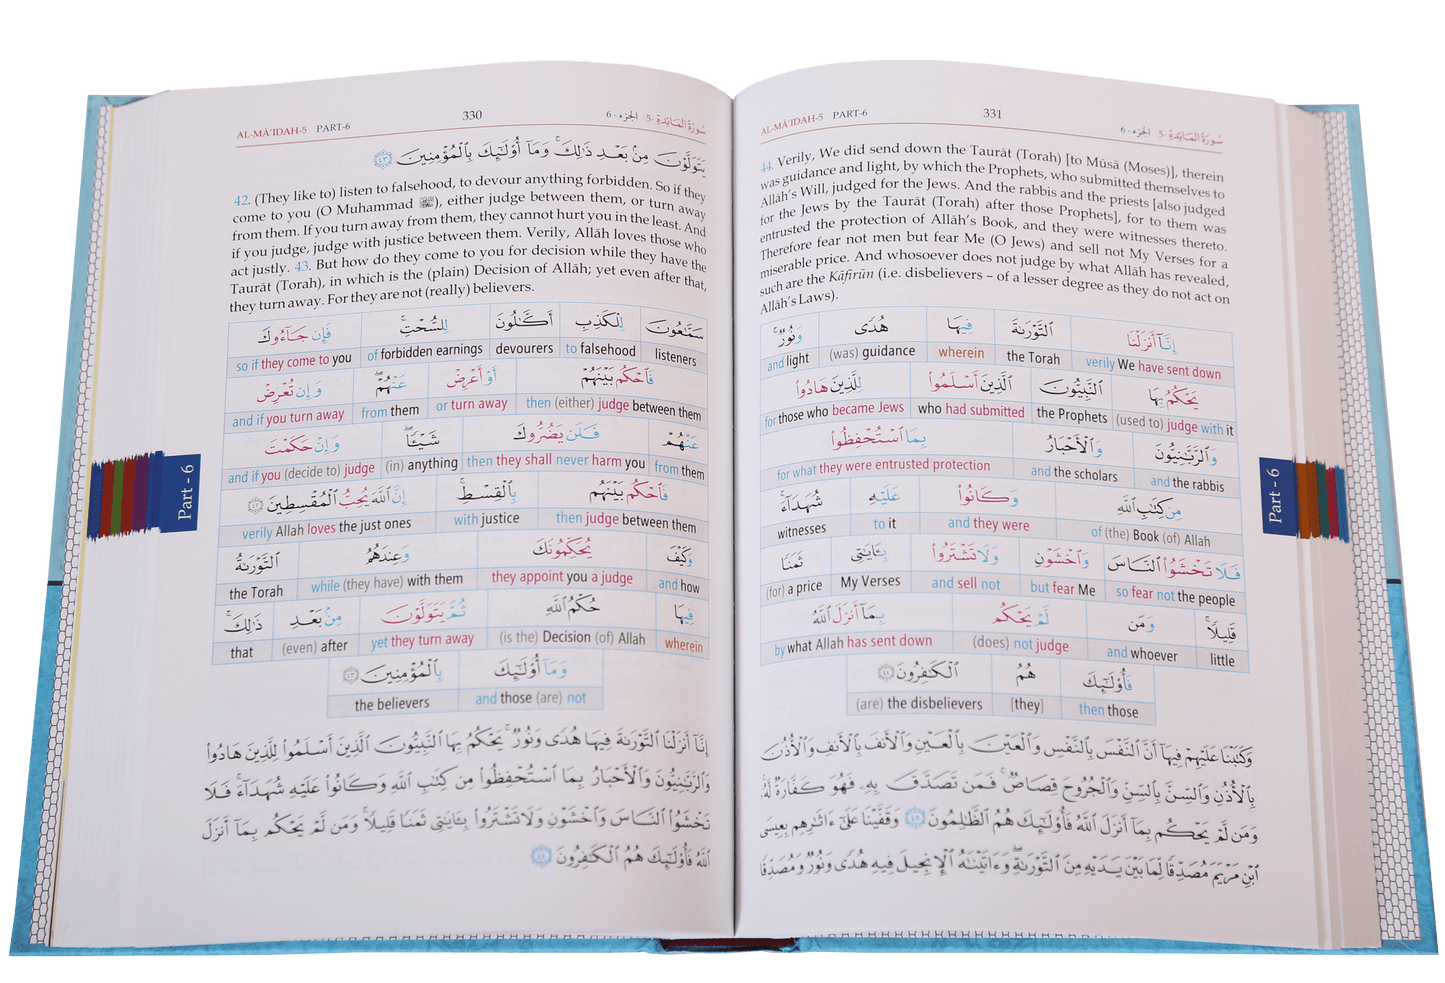 AL-MĀ'IDAH-5 PART-6 330 الجزء - 6 سُورَةُ المَائِدَةِ -5
يَتَوَلَّوۡنَ مِنۢ بَعۡدِ ذَٰلِكَۚ وَمَآ أُوْلَٰٓئِكَ بِٱلۡمُؤۡمِنِينَ ٤٣
42. (They like to) listen to falsehood, to devour anything forbidden. So if they
come to you (O Muhammad ﷺ), either judge between them, or turn away
from them. If you turn away from them, they cannot hurt you in the least. And
if you judge, judge with justice between them. Verily, Allāh loves those who
act justly. 43. But how do they come to you for decision while they have the
Taurāt (Torah), in which is the (plain) Decision of Allāh; yet even after that,
they turn away. For they are not (really) believers.
سَمَّٰعُونَ لِلۡكَذِبِ أَكَّٰلُونَ لِلسُّحۡتِۚ فَإِن جَآءُوكَ
so if they come to you of forbidden earnings devourers to falsehood listeners
فَٱحۡكُم بَيۡنَهُمۡ أَوۡ أَعۡرِضۡ عَنۡهُمۡۖ وَإِن تُعۡرِضۡ
and if you turn away from them or turn away then (either) judge between them
عَنۡهُمۡ فَلَن يَضُرُّوكَ شَيۡـٔٗاۖ وَإِنۡ حَكَمۡتَ
and if you (decide to) judge (in) anything then they shall never harm you from them
فَٱحۡكُم بَيۡنَهُم بِٱلۡقِسۡطِۚ إِنَّ ٱللَّهَ يُحِبُّ ٱلۡمُقۡسِطِينَ ٤٢
verily Allah loves the just ones with justice then judge between them
وَكَيۡفَ يُحَكِّمُونَكَ وَعِندَهُمُ ٱلتَّوۡرَىٰةُ
the Torah while (they have) with them they appoint you a judge and how
فِيهَا حُكۡمُ ٱللَّهِ ثُمَّ يَتَوَلَّوۡنَ مِنۢ بَعۡدِ ذَٰلِكَۚ
that (even) after yet they turn away (is the) Decision (of) Allah wherein
وَمَآ أُوْلَٰٓئِكَ بِٱلۡمُؤۡمِنِينَ ٤٣
the believers and those (are) not
إِنَّآ أَنزَلۡنَا ٱلتَّوۡرَىٰةَ فِيهَا هُدٗى وَنُورٞۚ يَحۡكُمُ بِهَا ٱلنَّبِيُّونَ ٱلَّذِينَ أَسۡلَمُواْ لِلَّذِينَ هَادُواْ
وَٱلرَّبَّٰنِيُّونَ وَٱلۡأَحۡبَارُ بِمَا ٱسۡتُحۡفِظُواْ مِن كِتَٰبِ ٱللَّهِ وَكَانُواْ عَلَيۡهِ شُهَدَآءَۚ فَلَا
تَخۡشَوُاْ ٱلنَّاسَ وَٱخۡشَوۡنِ وَلَا تَشۡتَرُواْ بِـَٔايَٰتِي ثَمَنٗا قَلِيلٗاۚ وَمَن لَّمۡ يَحۡكُم بِمَآ أَنزَلَ
ٱللَّهُ فَأُوْلَٰٓئِكَ هُمُ ٱلۡكَٰفِرُونَ ٤٤
Part - 6
AL-MĀ'IDAH-5 PART-6 331 الجزء - 6 سُورَةُ المَائِدَةِ -5
44. Verily, We did send down the Taurāt (Torah) [to Mūsā (Moses)], therein
was guidance and light, by which the Prophets, who submitted themselves to
Allāh's Will, judged for the Jews. And the rabbis and the priests [also judged
for the Jews by the Taurāt (Torah) after those Prophets], for to them was
entrusted the protection of Allāh's Book, and they were witnesses thereto.
Therefore fear not men but fear Me (O Jews) and sell not My Verses for a
miserable price. And whosoever does not judge by what Allāh has revealed,
such are the Kāfirūn (i.e. disbelievers – of a lesser degree as they do not act on
Allāh's Laws).
إِنَّآ أَنزَلۡنَا ٱلتَّوۡرَىٰةَ فِيهَا هُدٗى وَنُورٞۚ
and light (was) guidance wherein the Torah verily We have sent down
يَحۡكُمُ بِهَا ٱلنَّبِيُّونَ ٱلَّذِينَ أَسۡلَمُواْ لِلَّذِينَ هَادُواْ
for those who became Jews who had submitted the Prophets (used to) judge with it
وَٱلرَّبَّٰنِيُّونَ وَٱلۡأَحۡبَارُ بِمَا ٱسۡتُحۡفِظُواْ
for what they were entrusted protection and the scholars and the rabbis
مِن كِتَٰبِ ٱللَّهِ وَكَانُواْ عَلَيۡهِ شُهَدَآءَۚ
witnesses to it and they were of (the) Book (of) Allah
فَلَا تَخۡشَوُاْ ٱلنَّاسَ وَٱخۡشَوۡنِ وَلَا تَشۡتَرُواْ بِـَٔايَٰتِي ثَمَنٗا
(for) a price My Verses and sell not but fear Me so fear not the people
قَلِيلٗاۚ وَمَن لَّمۡ يَحۡكُم بِمَآ أَنزَلَ ٱللَّهُ
by what Allah has sent down (does) not judge and whoever little
فَأُوْلَٰٓئِكَ هُمُ ٱلۡكَٰفِرُونَ ٤٤
(are) the disbelievers [they] then those
وَكَتَبۡنَا عَلَيۡهِمۡ فِيهَآ أَنَّ ٱلنَّفۡسَ بِٱلنَّفۡسِ وَٱلۡعَيۡنَ بِٱلۡعَيۡنِ وَٱلۡأَنفَ بِٱلۡأَنفِ وَٱلۡأُذُنَ
بِٱلۡأُذُنِ وَٱلسِّنَّ بِٱلسِّنِّ وَٱلۡجُرُوحَ قِصَاصٞۚ فَمَن تَصَدَّقَ بِهِۦ فَهُوَ كَفَّارَةٞ لَّهُۥۚ
وَمَن لَّمۡ يَحۡكُم بِمَآ أَنزَلَ ٱللَّهُ فَأُوْلَٰٓئِكَ هُمُ ٱلظَّٰلِمُونَ ٤٥ وَقَفَّيۡنَا عَلَىٰٓ ءَاثَٰرِهِم بِعِيسَى
ٱبۡنِ مَرۡيَمَ مُصَدِّقٗا لِّمَا بَيۡنَ يَدَيۡهِ مِنَ ٱلتَّوۡرَىٰةِۖ وَءَاتَيۡنَٰهُ ٱلۡإِنجِيلَ فِيهِ هُدٗى وَنُورٞ وَمُصَدِّقٗا
Part - 6